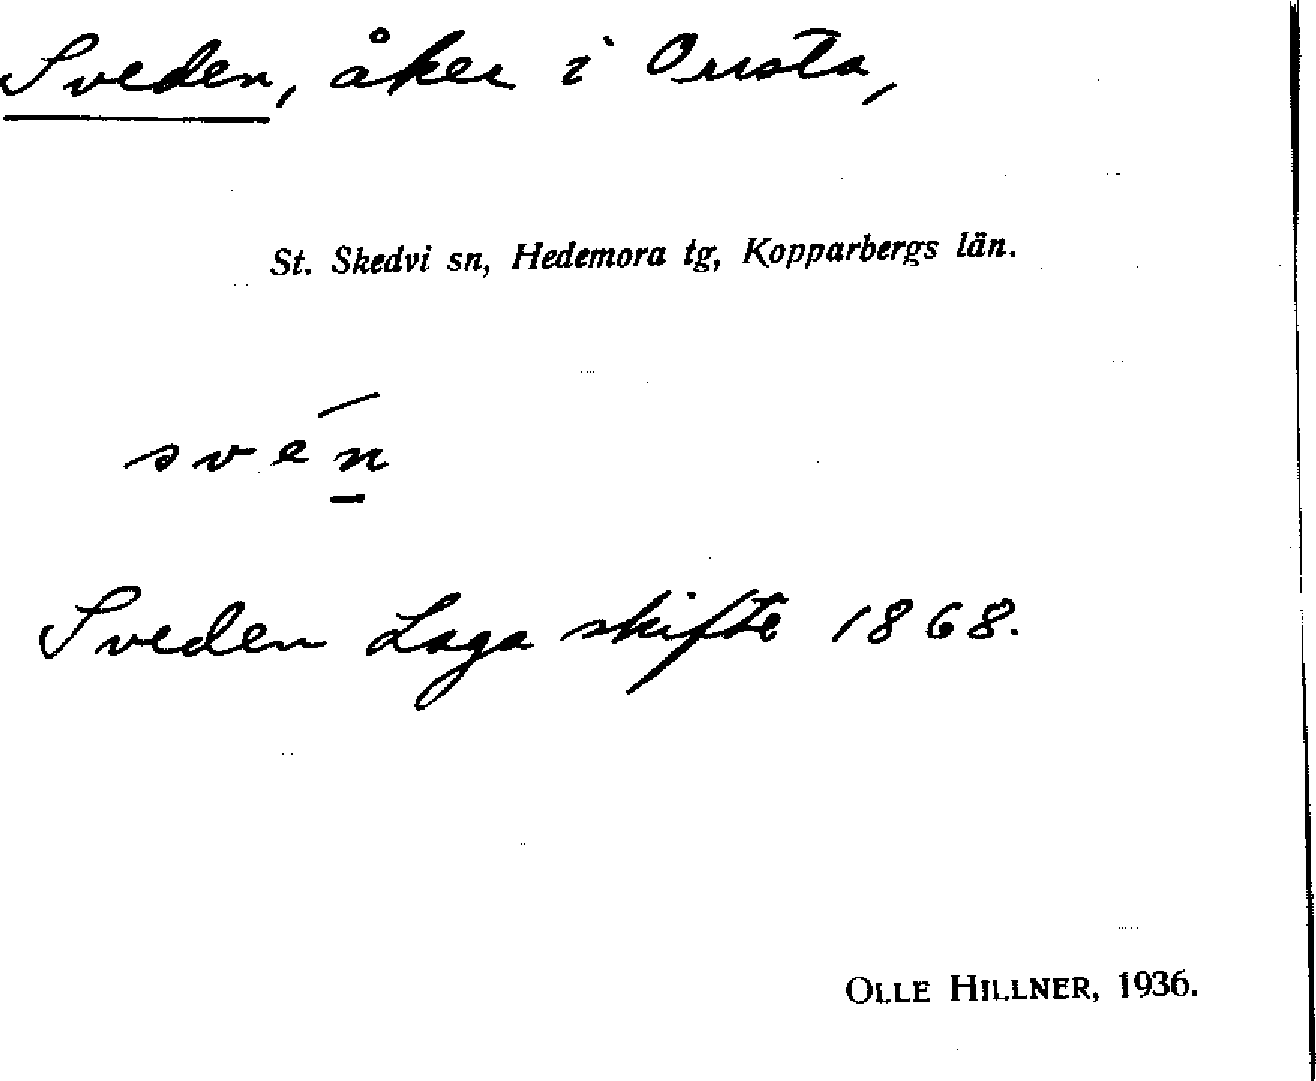 Sveden, åker i Orrsta,
St. Skedvi sn, Hedemora tg, Kopparbergs län.
své̱n
Sveden Laga skifte 1868.
OLLE HILLNER, 1936.